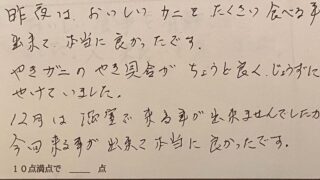 昨夜は、おいしいカニをたくさん食べる事
出来て本当に良かったです。
やきガニのやき具合がちょうど良く、じょうずに
やけていました。
12月は満室で来る事が出来ませんでしたが
今回来る事が出来て本当に良かったです。
10点満点で ____ 点